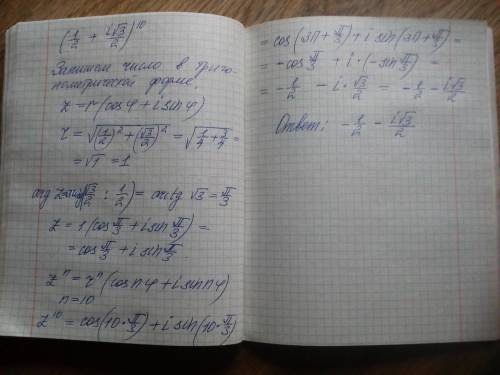 (1/2 + i√3/2)^10
Запишем число в триго-
нометрической форме.
z = r(cosφ + i sinφ)
r = √((1/2)² + (√3/2)²) = √(1/4 + 3/4) =
= √1 = 1
arg z = arctg(√3/2 : 1/2) = arctg √3 = π/3
z = 1(cos π/3 + i sin π/3) =
= cos π/3 + i sin π/3
zⁿ = rⁿ(cos nφ + i sin nφ)
n = 10
z^10 = cos(10·π/3) + i sin(10·π/3)
= cos(3π + π/3) + i sin(3π + π/3) =
= -cos π/3 + i·(-sin π/3) =
= -1/2 - i·√3/2 = -1/2 - i√3/2
Ответ: -1/2 - i√3/2